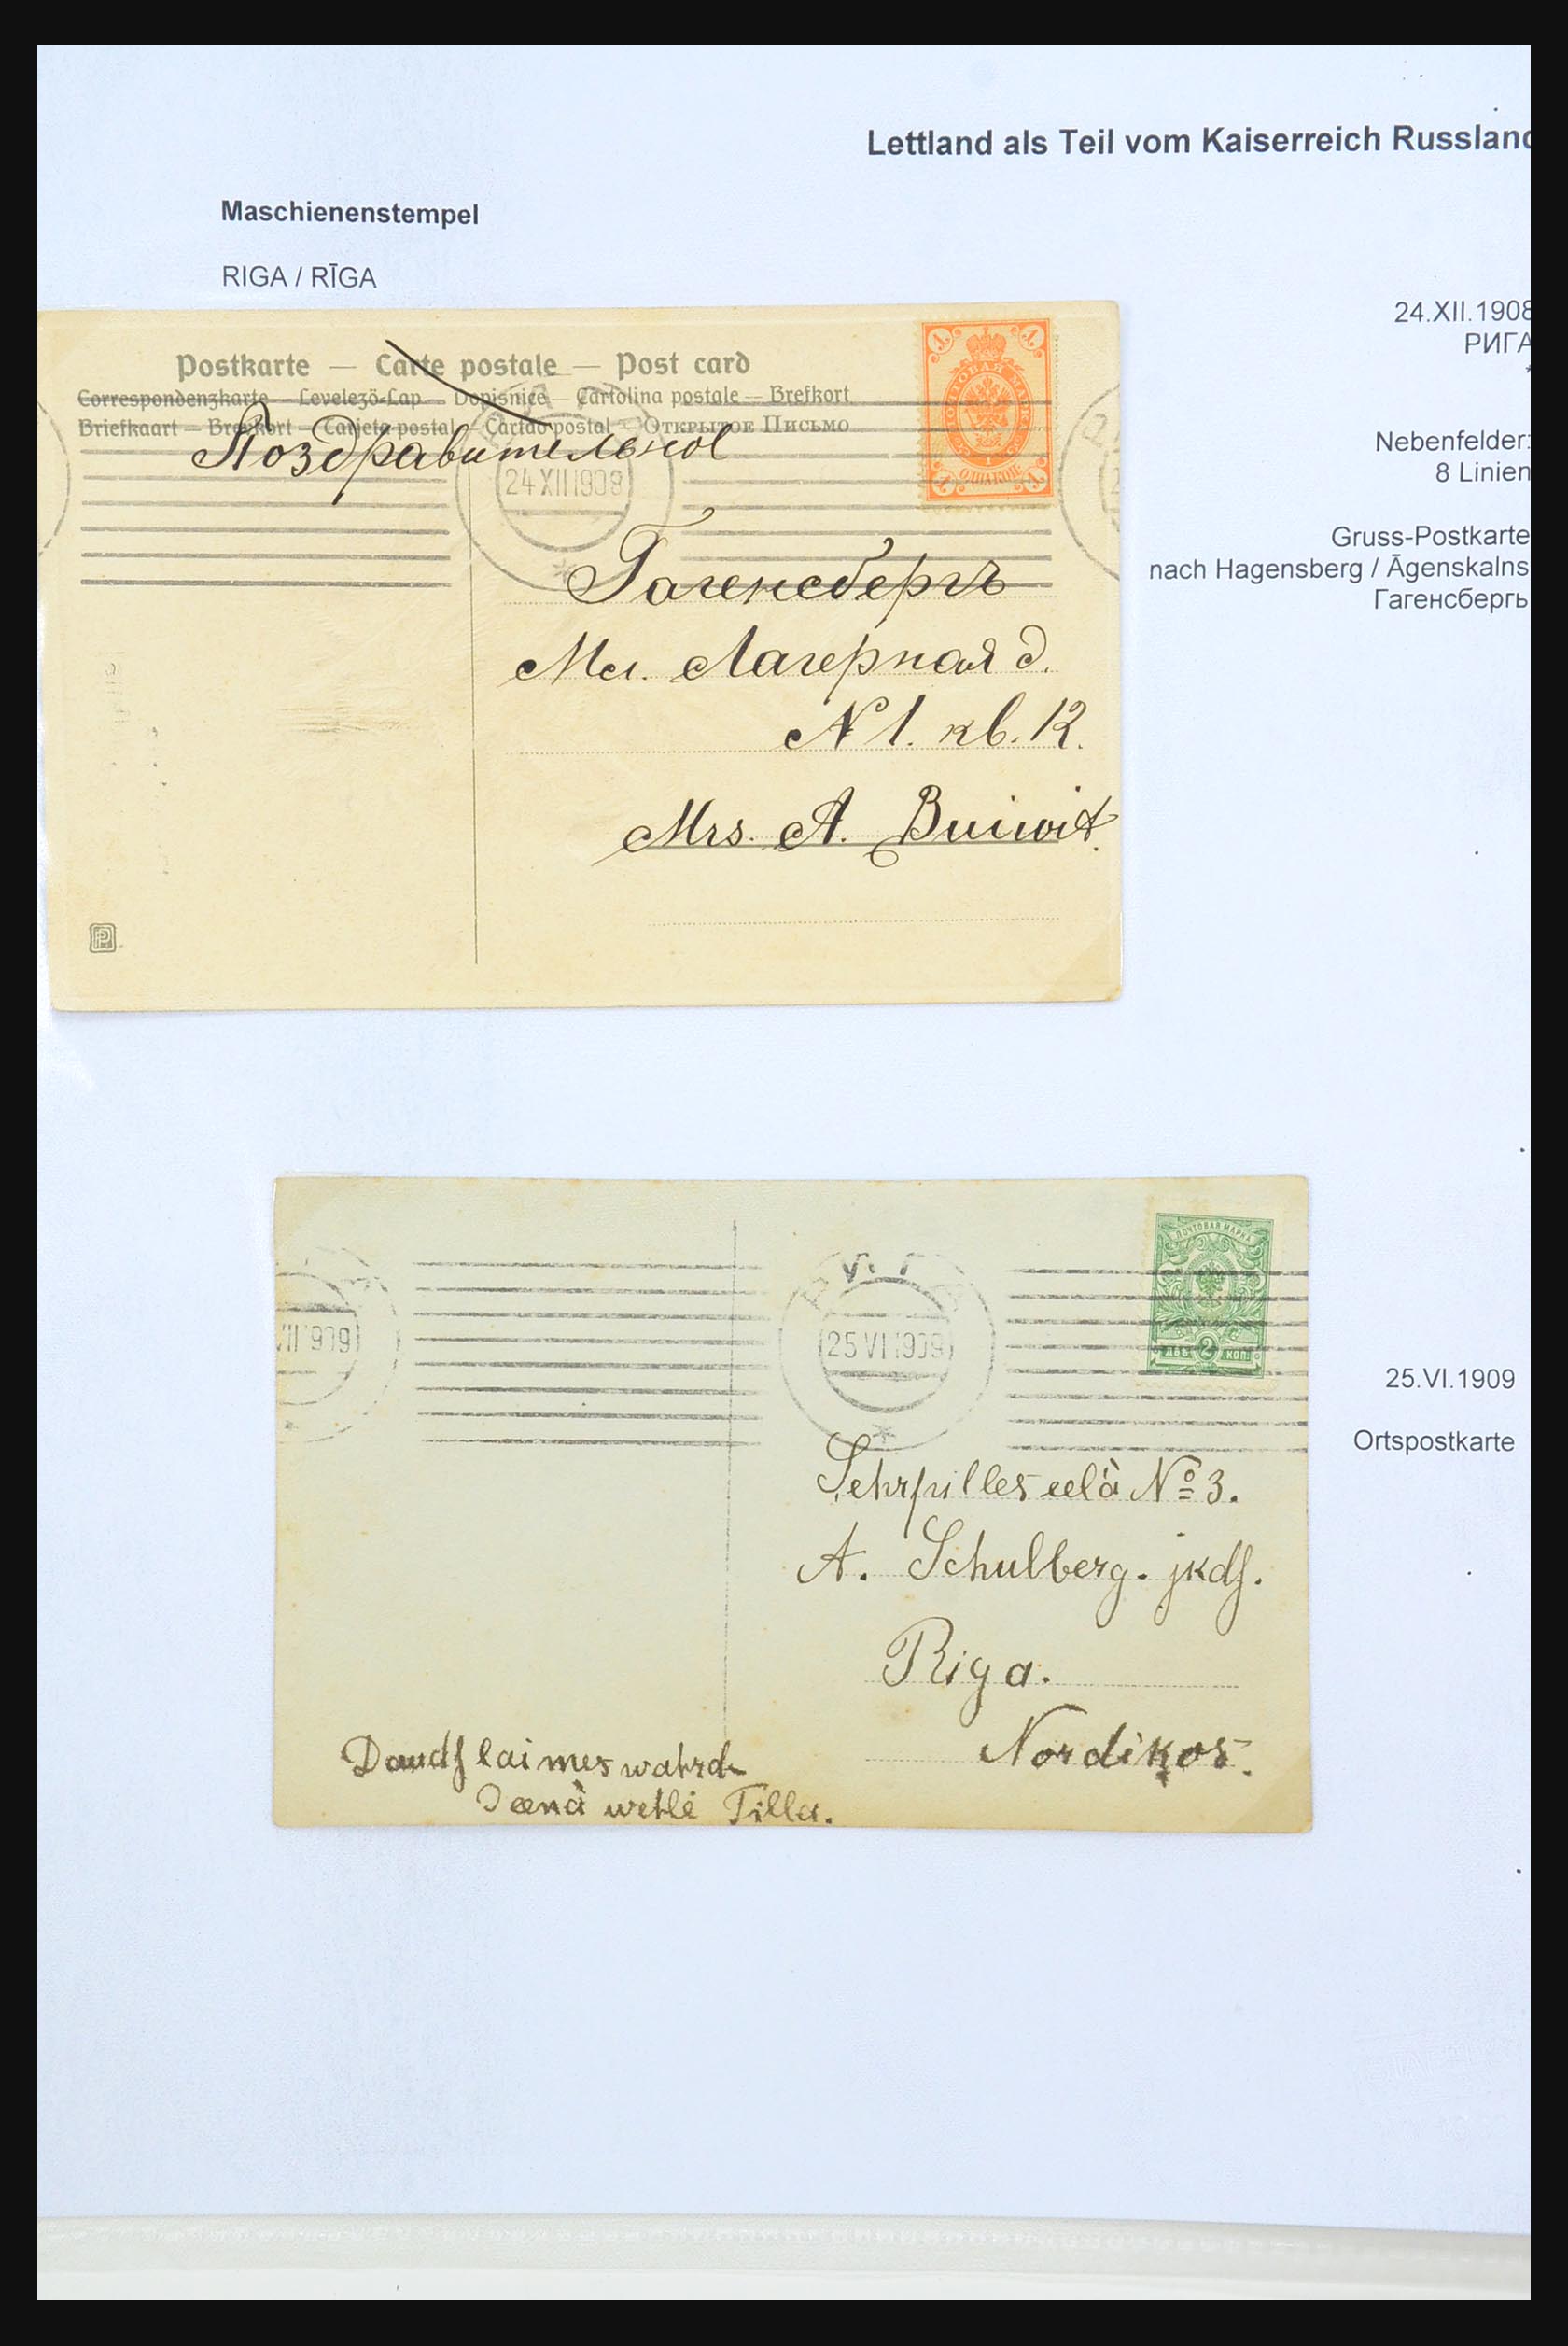 Lettland als Teil vom Kaiserreich Russland
Maschienenstempel
RIGA / RĪGA
24.XII.1908
РИГА
*
Nebenfelder:
8 Linien
Gruss-Postkarte
nach Hagensberg / Āgenskalns
Гагенсбергь
Postkarte — Carte postale — Post card
Correspondenzkarte — Levelező-Lap — Dopisnice — Cartolina postale — Brefkort
Briefkaart — Brevkort — Tarjeta postal — Cartão postal — Открытое Письмо
Поздравительное
24 XII 1908
ПОЧТОВАЯ МАРКА
Гагенсбергъ
Мл. Лагерная д.
N 1. кв. 12.
Mrs. A. Buiwit.
25 VI 1909
ПОЧТОВАЯ МАРКА
ДВѢ 2 КОП.
25.VI.1909
Ortspostkarte
Sehrpilles eelà № 3.
A. Schulberg. jkdſ.
Riga.
Nordikos.
Daudſ laimes wahrda
Deenà wehlé Tilla.